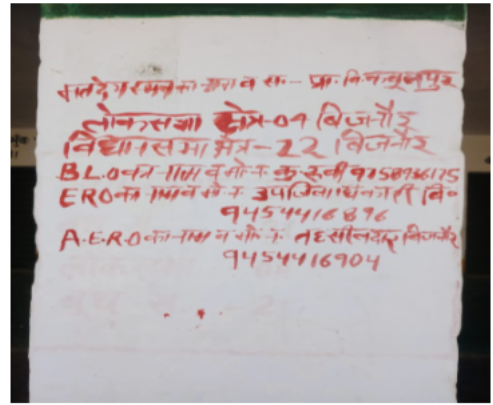 मतदेय स्थल का नाम व सं०- प्रा० वि०
लोकसभा क्षेत्र-04 बिजनौर
विधानसभा क्षेत्र-22 बिजनौर
B.L.O का नाम व मो० नं० कु० रूबी
ERO का नाम व मो० नं० उपजिलाधिकारी बि०
9454416896
A.E.R.O का नाम व मो० नं० तहसीलदार बिजनौर
9454416904